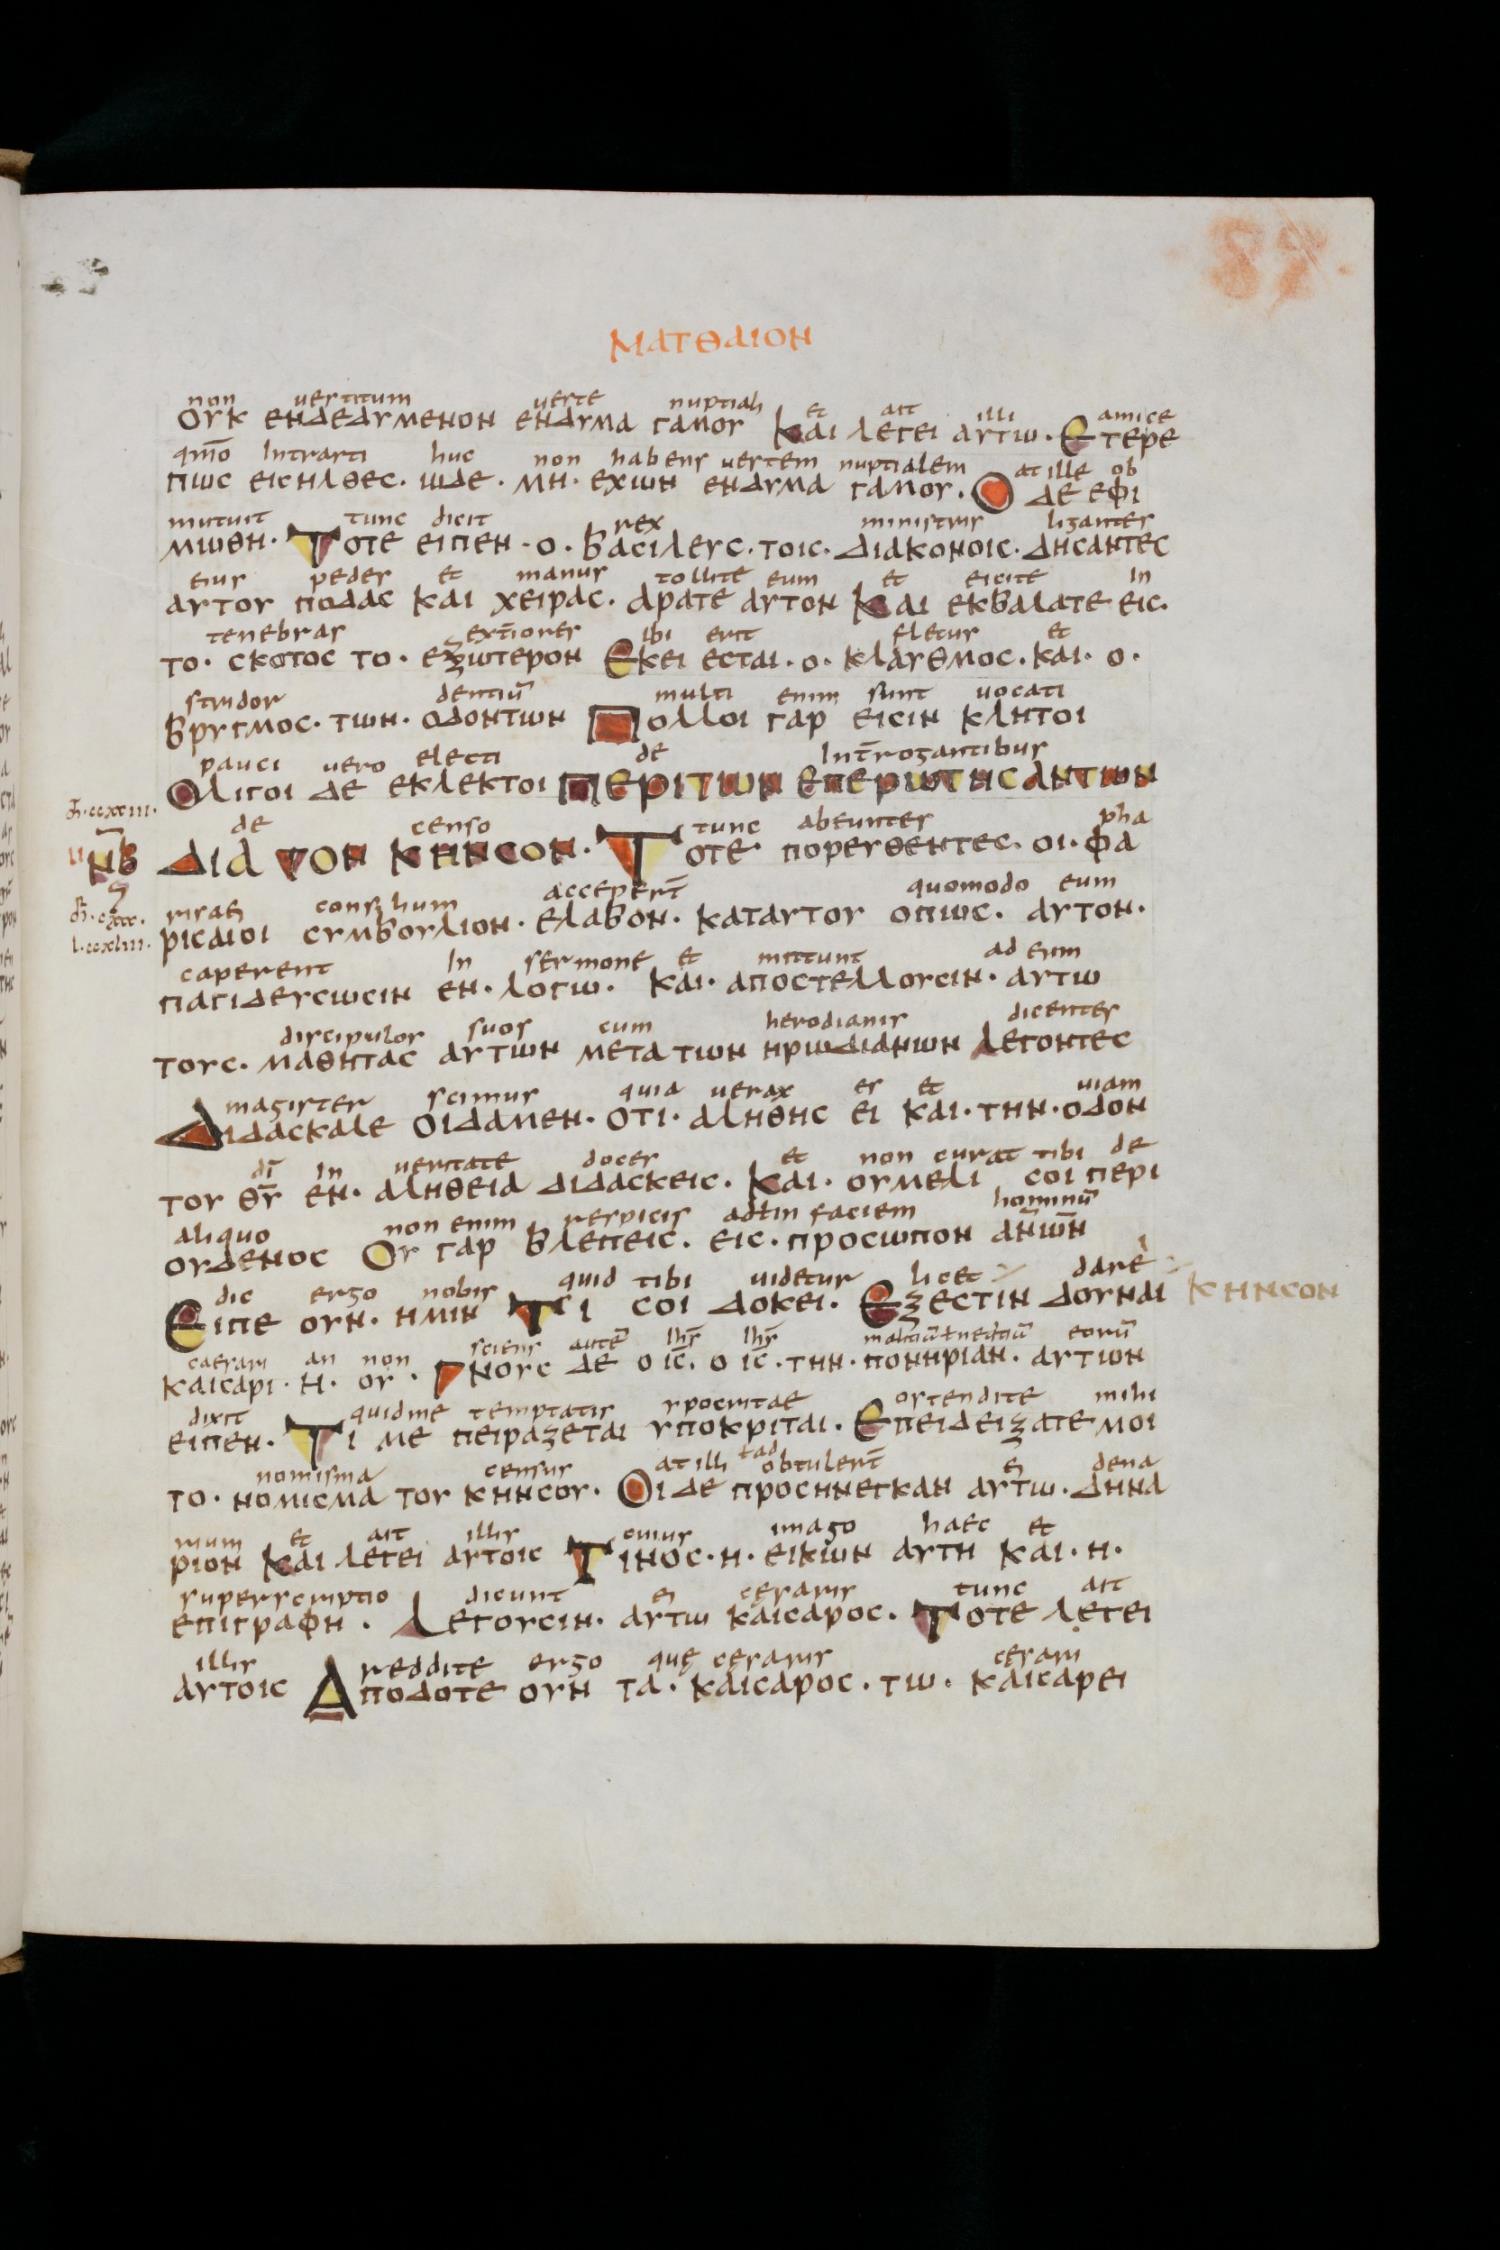 87.
ΜΑΤΘΑΙΟΝ
non uestitum ueste nuptiali et ait illi amice
ΟΥΚ ΕΝΔΕΔΥΜΕΝΟΝ ΕΝΔΥΜΑ ΓΑΜΟΥ ΚΑΙ ΛΕΓΕΙ ΑΥΤΩ· ΕΤΕΡΕ
qmō intrasti huc non habens uestem nuptialem at ille ob
ΠΩC ΕΙCΗΛΘΕC· ΩΔΕ· ΜΗ· ΕΧΩΝ ΕΝΔΥΜΑ ΓΑΜΟΥ· Ο ΔΕ ΕΦΙ
mutuit tunc dicit rex ministris ligantes
ΜΩΘΗ· ΤΟΤΕ ΕΙΠΕΝ· Ο· ΒΑCΙΛΕΥC· ΤΟΙC· ΔΙΑΚΟΝΟΙC· ΔΗCΑΝΤΕC
eius pedes et manus tollite eum et eicite in
ΑΥΤΟΥ ΠΟΔΑC ΚΑΙ ΧΕΙΡΑC· ΑΡΑΤΕ ΑΥΤΟΝ ΚΑΙ ΕΚΒΑΛΑΤΕ ΕΙC·
tenebras ext̄iores ibi erit fletus et
ΤΟ· CΚΟΤΟC ΤΟ· ΕΞΩΤΕΡΟΝ ΕΚΕΙ ΕCΤΑΙ· Ο· ΚΛΑΥΘΜΟC· ΚΑΙ· Ο·
stridor dentiū multi enim sunt uocati
ΒΡΥΓΜΟC· ΤΩΝ· ΟΔΟΝΤΩΝ ΠΟΛΛΟΙ ΓΑΡ ΕΙCΙΝ ΚΛΗΤΟΙ
pauci uero electi de int̄rogantibus
ΟΛΙΓΟΙ ΔΕ ΕΚΛΕΚΤΟΙ ΠΕΡΙ ΤΩΝ ΕΠΕΡΩΤΗCΑΝΤΩΝ
de censo tunc abeuntes pha
ΔΙΑ ΤΟΝ ΚΗΝCΟΝ· ΤΟΤΕ ΠΟΡΕΥΘΕΝΤΕC· ΟΙ· ΦΑ
risaei consilium acceper̄t quomodo eum
ΡΙCΑΙΟΙ CΥΜΒΟΥΛΙΟΝ· ΕΛΑΒΟΝ· ΚΑΤΑΥΤΟΥ ΟΠΩC· ΑΥΤΟΝ·
caperent in sermone et mittunt ad eum
ΠΑΓΙΔΕΥCΩCΙΝ ΕΝ· ΛΟΓΩ· ΚΑΙ· ΑΠΟCΤΕΛΛΟΥCΙΝ· ΑΥΤΩ
discipulos suos cum herodianis dicentes
ΤΟΥC· ΜΑΘΗΤΑC ΑΥΤΩΝ ΜΕΤΑ ΤΩΝ ΗΡΩΔΙΑΝΩΝ ΛΕΓΟΝΤΕC
magister scimus quia uerax es et uiam
ΔΙΔΑCΚΑΛΕ ΟΙΔΑΜΕΝ· ΟΤΙ· ΑΛΗΘΗC ΕΙ ΚΑΙ· ΤΗΝ· ΟΔΟΝ
dī in ueritate doces et non curat tibi de
ΤΟΥ Θ̅Υ̅ ΕΝ· ΑΛΗΘΕΙΑ ΔΙΔΑCΚΕΙC· ΚΑΙ· ΟΥΜΕΛΙ CΟΙ ΠΕΡΙ
aliquo non enim respicis ad ł in faciem hominū
ΟΥΔΕΝΟC ΟΥ ΓΑΡ ΒΛΕΠΕΙC· ΕΙC· ΠΡΟCΩΠΟΝ Α̅Ν̅Ω̅Ν̅
dic ergo nobis quid tibi uidetur licet dare
ΕΙΠΕ ΟΥΝ· ΗΜΙΝ ΤΙ CΟΙ ΔΟΚΕΙ· ΕΞΕCΤΙΝ ΔΟΥΝΑΙ ΚΗΝCΟΝ
caesari an non sciens autē ih̄s ih̄s eorū
ΚΑΙCΑΡΙ· Η· ΟΥ· ΓΝΟΥC ΔΕ Ο Ι̅C̅· Ο Ι̅C̅· ΤΗΝ· ΠΟΝΗΡΙΑΝ· ΑΥΤΩΝ
dixit quid me temptatis ypocritae ostendite mihi
ΕΙΠΕΝ· ΤΙ ΜΕ ΠΕΙΡΑΖΕΤΑΙ ΥΠΟΚΡΙΤΑΙ· ΕΠΕΙΔΕΙΞΑΤΕ ΜΟΙ
nomisma census at illi ł ad obtuler̄t ei dena
ΤΟ· ΝΟΜΙCΜΑ ΤΟΥ ΚΗΝCΟΥ· ΟΙ ΔΕ ΠΡΟCΗΝΕΓΚΑΝ ΑΥΤΩ· ΔΗΝΑ
rium et ait illis cuius imago haec et
ΡΙΟΝ ΚΑΙ ΛΕΓΕΙ ΑΥΤΟΙC ΤΙΝΟC· Η· ΕΙΚΩΝ ΑΥΤΗ ΚΑΙ· Η·
superscriptio dicunt ei cesaris tunc ait
ΕΠΙΓΡΑΦΗ· ΛΕΓΟΥCΙΝ· ΑΥΤΩ ΚΑΙCΑΡΟC· ΤΟΤΕ ΛΕΓΕΙ
illis reddite ergo quę cesaris cesari
ΑΥΤΟΙC ΑΠΟΔΟΤΕ ΟΥΝ ΤΑ· ΚΑΙCΑΡΟC· ΤΩ· ΚΑΙCΑΡΕΙ